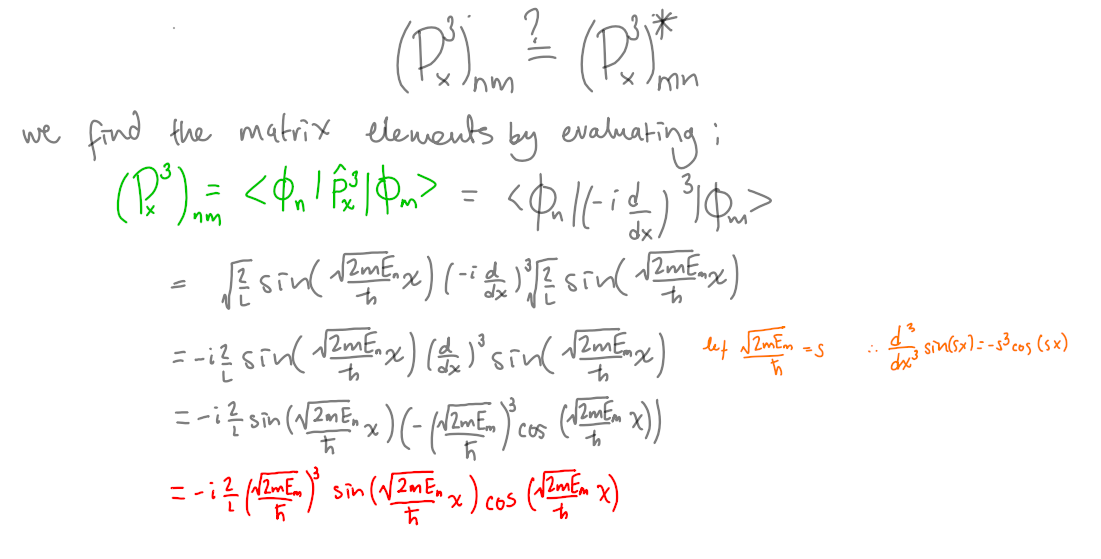 (P_x^3)_{nm} ?= (P_x^3)^*_{mn}
we find the matrix elements by evaluating;
(P_x^3)_{nm} = <ϕ_n|p̂_x^3|ϕ_m> = <ϕ_n|(-i d/dx)^3|ϕ_m>
= √(2/L) sin(√(2mE_n)/ħ x) (-i d/dx)^3 √(2/L) sin(√(2mE_m)/ħ x)
= -i 2/L sin(√(2mE_n)/ħ x) (d/dx)^3 sin(√(2mE_m)/ħ x) let √(2mE_m)/ħ = s ∴ d^3/dx^3 sin(sx) = -s^3 cos(sx)
= -i 2/L sin(√(2mE_n)/ħ x) (-(√(2mE_m)/ħ)^3 cos(√(2mE_m)/ħ x))
= -i 2/L (√(2mE_m)/ħ)^3 sin(√(2mE_n)/ħ x) cos(√(2mE_m)/ħ x)